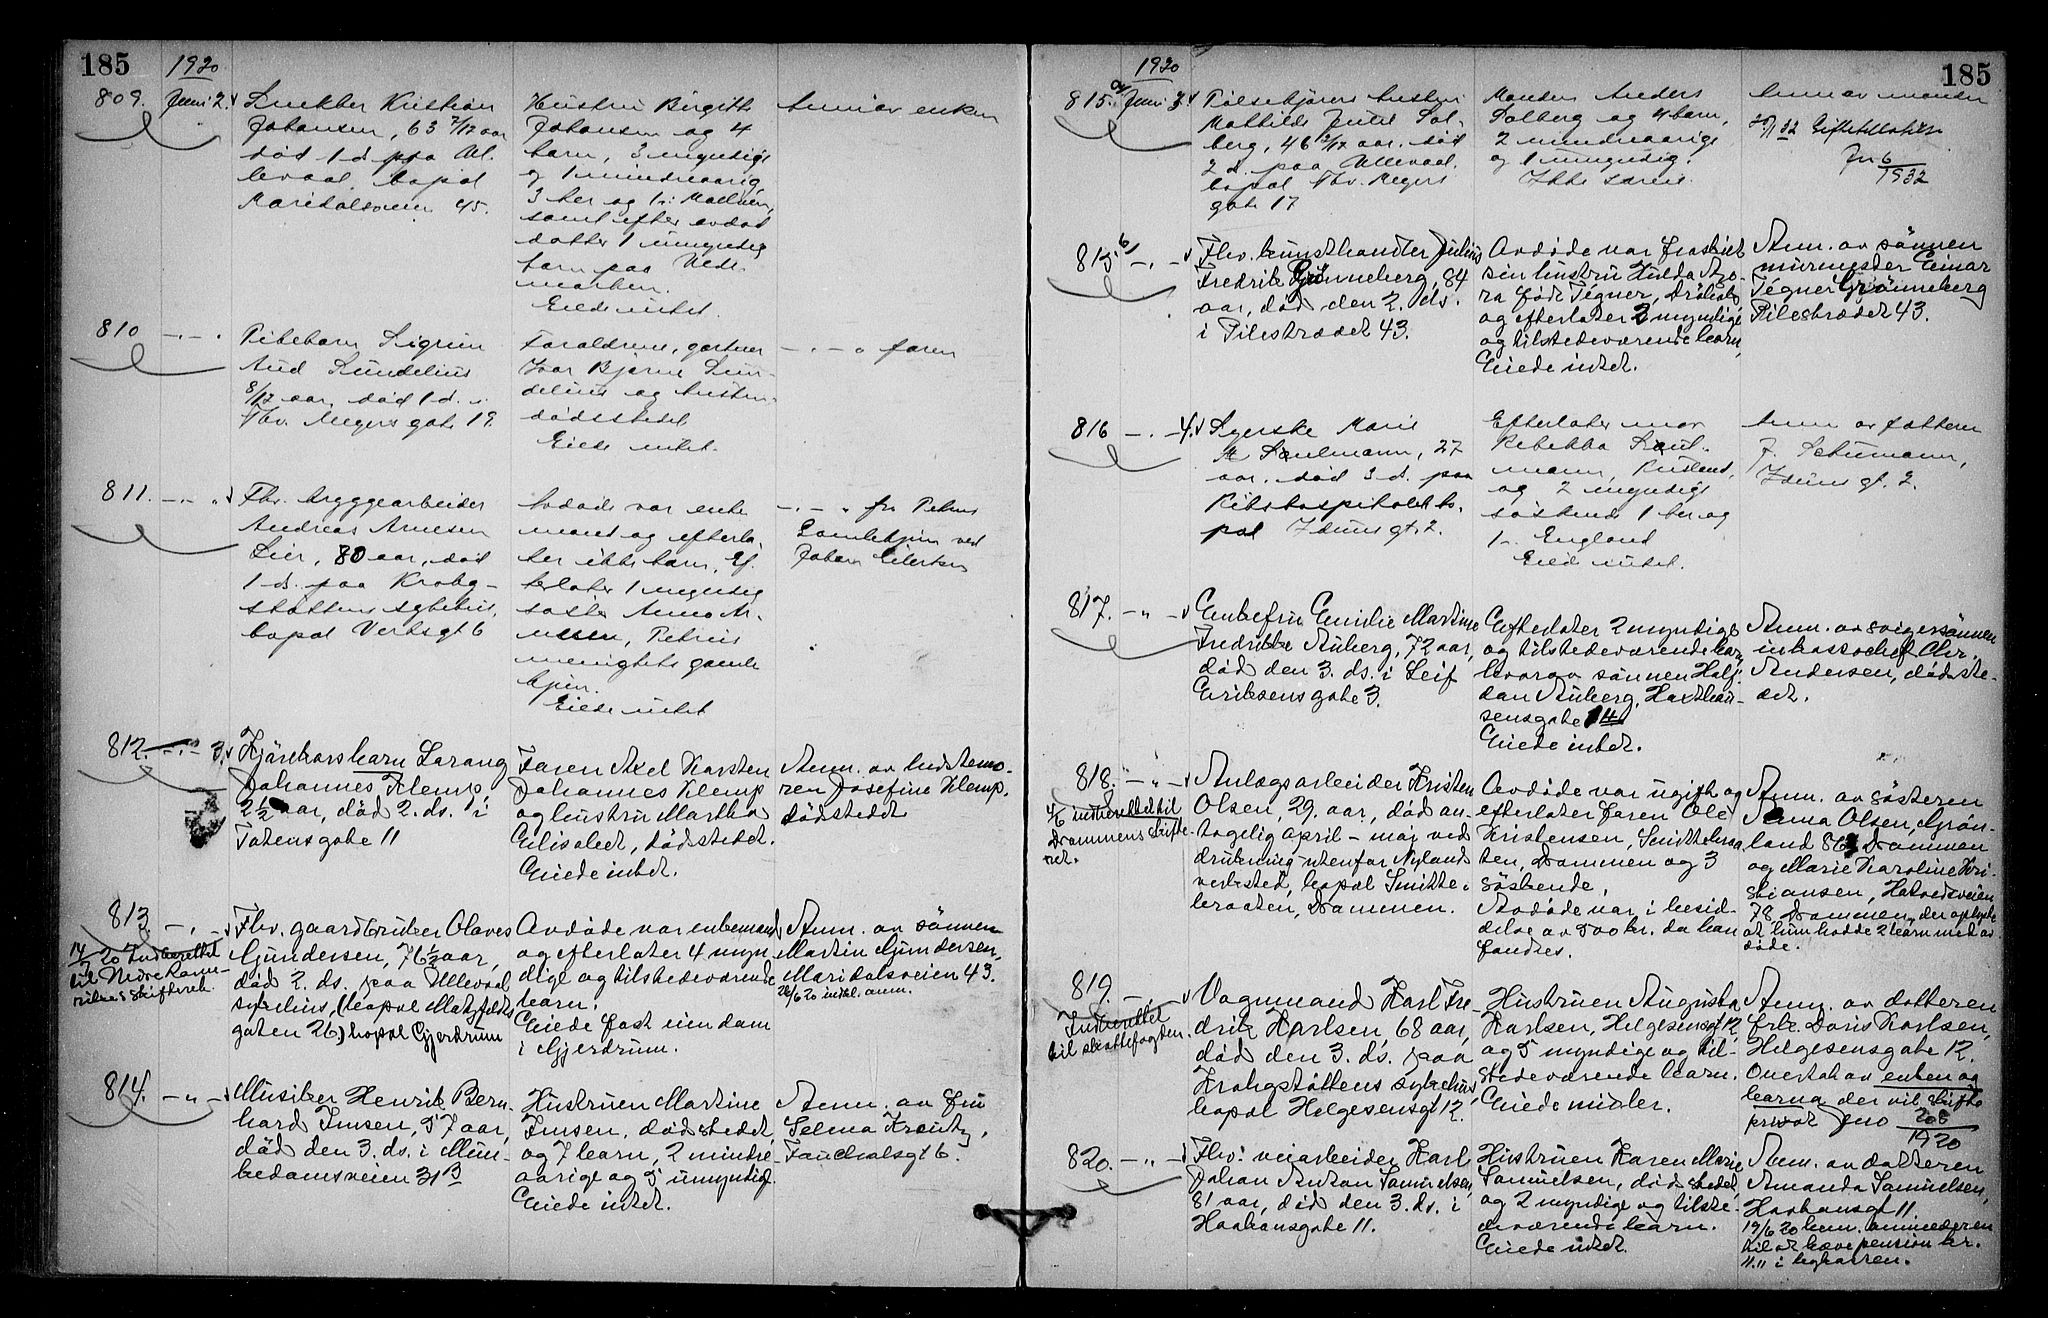 185
1920
809. Juni 2.
Snekker Kristian
Johansen, 63 7/12 aar
død 1 d. paa Ul-
levaal, bopæl
Maridalsveien 45.
Hustru Birgitte
Johansen og 4
barn, 3 myndige
og 1 mindreaarig,
3 her og 1 i
samt efter avdød
datter 1 umyndig
barn paa Hede-
marken.
Eiede intet.
Anm. av enken
810 -"-
Pikebarn Sigrun
Aud Sundelius
8/12 aar, død 1 d. i
Thv. Meyers gate 19.
Forældrene, gartner
Ivar Bjarne Sun-
delius og hustru,
dødsstedet
Eiede intet.
-"- faren
811. -"-
Fhv. bryggearbeider
Andreas Arnesen
Lier, 80 aar, død
1 d. paa Krohg-
støttens sykehus,
bopæl Verksgt 6
Avdøde var enke
mand og efterla-
ter ikke barn. Ef-
terlater 1 myndig
søster Anna Ar-
nesen, Petrus
menighets gamle
hjem.
Eiede intet
-"- fra Petrus
Gamlehjem ved
Johan Eilertsen
812. -"- 3.
Kjørekarsbarn Sarang
Johannes Klemp
2 1/2 aar, død 2. ds. i
Totensgate 11
Faren Axel Karsten
Johannes Klemp
og hustru Martha
Elisabet, dødstedet.
Eiede intet.
Anm. av bedstemo-
ren Josefine Klemp,
dødstedet
813. -"-
14/7 20 Indberettet
til Nedre Rome-
rikes skifteret.
Fhv. gaardbruker Olaves
Gundersen, 76 1/2 aar,
død 2. ds. paa Ullevaal
sykehus, (bopæl Matzfeldts
gaten 26.) bopæl Gjerdrum
Avdøde var enkemand
og efterlater 4 myn-
dige og tilstedeværende
barn.
Eiede fast eiendom
i Gjerdrum.
Anm. av sønnen
Martin Gundersen,
Maridalsveien 43.
26/6 20 indkl. anm.
814. -"-
Musiker Henrik Bern-
hard Imsen, 57 aar,
død den 3. ds. i Mun-
kedamsveien 31 B
Hustruen Martine
Imsen, dødstedet,
og 7 barn, 2 mindre-
aarige og 5 umyndig.
Eiede intet.
Anm. av fru
Selma Krantz,
Fauchalsgt 6.
185
1920
815. a Juni 3.
Pølsekjørers hustru
Mathilde Julie Sol-
berg, 46 2/12 aar, død
2 d. paa Ullevaal
bopæl Thv. Meyers
gate 17
Manden Anders
Solberg og 4 barn,
2 mindreaarige
og 1 umyndig.
Ikke særeie.
Anm av manden
20/1 32 Skifteattest
Jn 6/1932
815. b -"-
Fhv. kunsthandler Julius
Fredrik Grønneberg, 84
aar, død den 2. ds.
i Pilestrædet 43.
Avdøde var fraskilt
sin hustru Hulda Azo-
ra født Tegner, Drøbak,
og efterlater 2 myndige
og tilstedeværende barn.
Eiede intet.
Anm. av sønnen
murmester Einar
Tegner Grønneberg
Pilestrædet 43.
816 -"- 4.
Syerske Marie
M Saulmann, 27
aar, død 3 d. paa
Rikshospitalet bo-
pæl Idunsgt. 2.
Efterlater mor
Rebekka Saul-
mann, Rusland,
og 2 myndige
søskende 1 her og
1 i England
Eiede intet.
Anm av fætteren
F. Schumann,
Iduns gt. 2.
817. -"-
Enkefru Emilie Martine
Fredrikke Auberg, 72 aar,
død den 3. ds. i Leif
Eriksens gate 3.
Efterlater 2 myndige
og tilstedeværende barn,
hvorav sønnen Half-
dan Auberg, Haxthau-
sensgate 14
Eiede intet.
Anm. av svigersønnen
inkassochef Chr.
Andersen, dødste-
det.
818. -"-
4/6 indberettet til
Drammens skifte-
ret.
Anlægsarbeider Kristen
Olsen, 29 aar, død an-
tagelig april - maj ved
drukning utenfor Nylands
verksted, bopæl Smitte-
braaten, Drammen.
Avdøde var ugift og
efterlater faren Ole
Kristensen, Smittebraa-
ten, Drammen og 3
søskende.
Avdøde var i besid-
delse av 500 kr. da han
fandtes.
Anm. av søsteren
Anna Olsen, Grøn-
land 86, Drammen
og Marie Karoline Kri-
stiansen, Hotvedtveien
78, Drammen, der oplyste
at hun hadde 2 barn med av-
døde.
819. -"-
Indberettet
til skattefogden.
Vognmand Karl Fre-
drik Karlsen, 68 aar,
død den 3. ds. paa
Krohgstøttens sykehus,
bopæl Helgesensgt 12.
Hustruen Augusta
Karlsen, Helgesensgt 12,
og 5 myndige og til-
stedeværende barn.
Eiede midler.
Anm. av datteren
frk. Doris Karlsen,
Helgesensgate 12.
Overtak av enken og
barna der vil skifte
privat Jno 208/1920
820. -"-
Fhv. veiarbeider Karl
Johan Anton Samuelsen,
81 aar, død den 3. ds. i
Haakonsgate 11.
Hustruen Karen Marie
Samuelsen, dødstedet,
og 2 myndige og tilste-
deværende barn.
Eiede intet.
Anm. av datteren
Amanda Samuelsen,
Haakonsgt 11.
19/6 20 bem. anmelderen
til at hæve pension kr.
11.11 i bykassen.